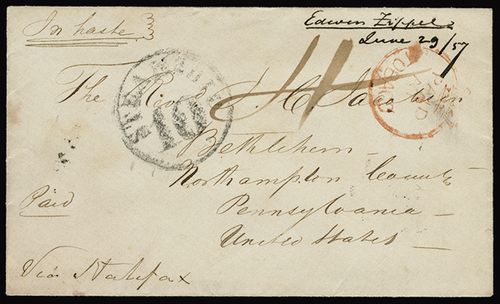 In haste
Edwin Zippel
June 29/57
The
STEAMSHIP
10
PAID
Bethlehem
Northampton County
Pennsylvania
United States
Paid
Via Halifax